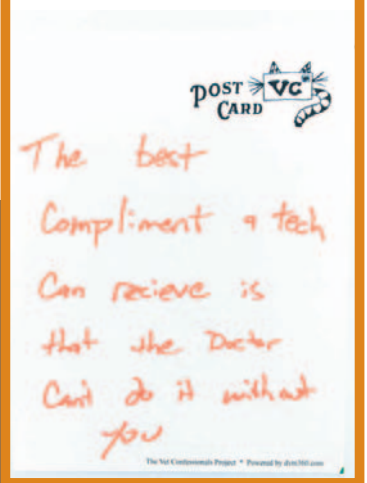 POST CARD
VC
The best
Compliment a tech
Can recieve is
that the Doctor
Can't do it without
you
The Vet Confessionals Project * Powered by dvm360.com